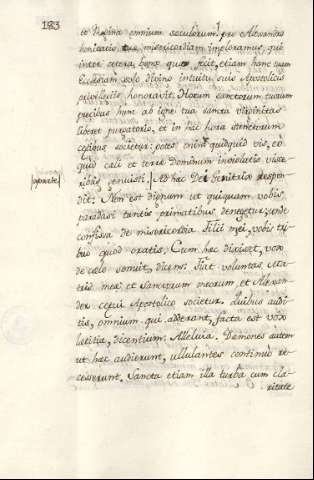 183
et Regina omnium seculorum, pro Alexandro
bonitatis tue misericordiam imploramus, qui
inter cetera bona que fecit, etiam hanc suam
Ecclesiam solo divino intuitu suis Apostolicis
privilegiis honoravit. Horum sanctorum tuorum
precibus hunc ab igne tua sancta virginitas
liberet purgatorio, et in hac hora sanctorum
cetibus societur: potes enim quidquid vis, eo
quod celi et terre Dominum inviolatis visce-
ribus genuisti. Ad hac Dei Genitrix respon-
dit: Non est dignum ut quiquam vobis
paradisi tantis primatibus denegetur; unde
confissa de misericordia Filii mei, vobis tri-
buo quod oratis. Cum hac dixisset, vox
de celo sonuit, dicens: Fiat voluntas ma-
tris mea et Sanctorum meorum et Alexan-
der cetui Apostolico societur. Quibus audi-
tis, omnium qui adderant, facta est vox
letitia, dicentium: Alleluia. Demones autem
ut hac audierunt, ullulantes continuo re-
cesserunt. Sancta etiam illa turba cum cla-
ritate